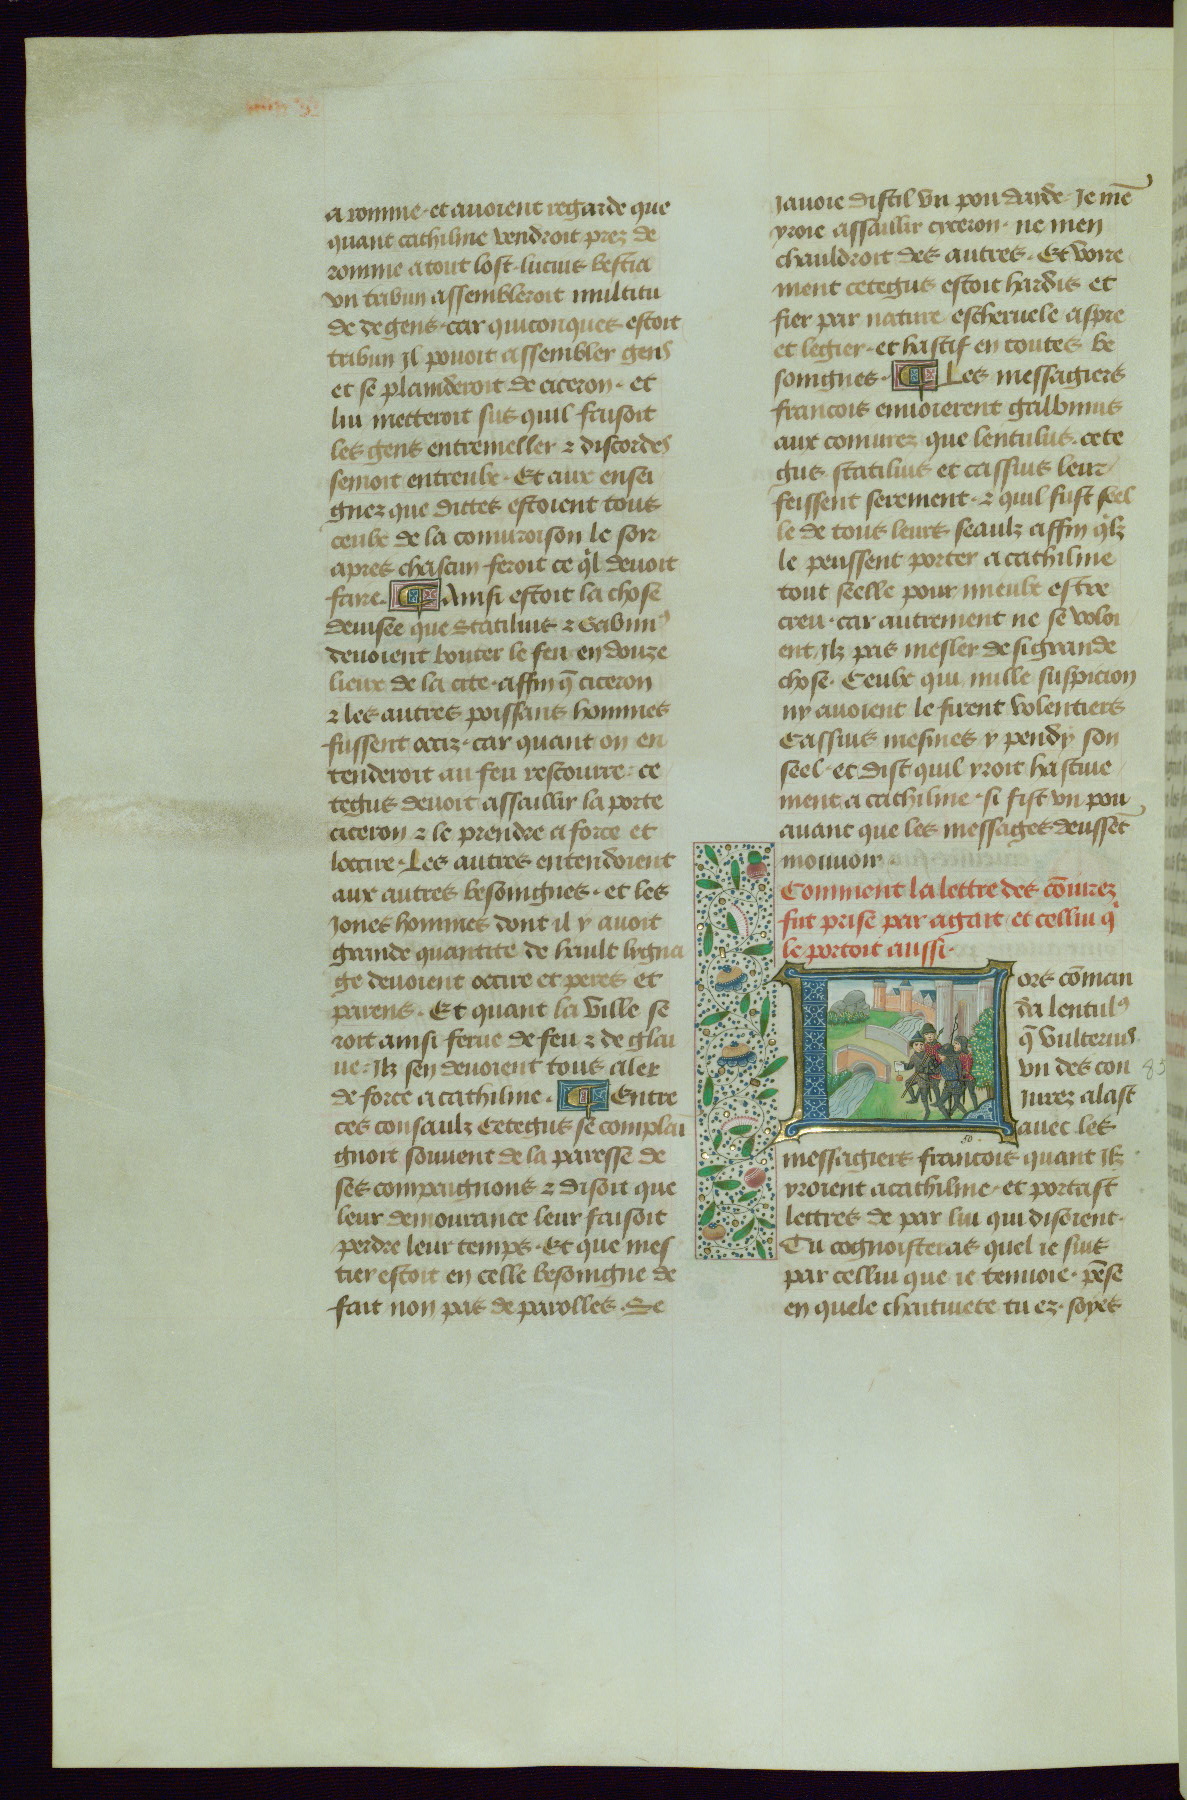 a romme· et auoient regarde que
quant cathiline vendroit prez de
romme a tout lost· lucius bestia
vn tribun assembleroit multitu
de de gens· car quiconques estoit
tribun Il pouoit assembler gens
et se plainderoit de ciceron· et
lui metteroit sus quil faisoit
les gens entremeller ⁊ discordes
semoit entreulx· Et aux ensei
gnez que dittes estoient tous
ceulx de la coniuroison le soir
apres chascun feroit ce ql deuoit
faire· Ainsi estoit la chose
deuisee que Statilius ⁊ Gabini9
deuoient bouter le feu en douze
lieux de la cite· affin q̄ ciceron
⁊ les autres poissans hommes
fussent occiz· car quant on en
tenderoit au feu rescourre· ce
tegus deuoit assaillir la porte
ciceron ⁊ le prendre a force et
loccire· Les autres entendoient
aux autres besoingnes· et les
Jones hommes dont il y auoit
grande quantite de hault lygna
ge deuoient occire et peres et
parens· Et quant la ville se
roit ainsi ferue de feu ⁊ de glai
ue· Ilz sen deuoient tous aler
de force a cathiline· Entre
ces consaulz Cetegus se complai
gnoit souuent de la paresse de
ses compaignons ⁊ disoit que
leur demourance leur faisoit
perdre leur temps· Et que mes
tier estoit en celle besoingne de
fait non pas de parolles· Se
Jauoie distil vn pou daide· Je mē
yroie assaillir ciceron· ne men
chauldroit des autres· Et voire
ment cetegus estoit hardis et
fier par nature escheruele aspre
et legier· et hastif en toutes be
soingnes· Les messagiers
francois enuoierent gabinius
aux coniurez que lentulus· cete
gus statilius et cassius leur
feissent serement· ⁊ quil fust seel
le de tous leurs seaulz affin qlz
le peussent porter a cathiline
tout seelle pour mieulx estre
creu· car autrement ne se voloi
ent Ilz pas mesler de si grande
chose· Ceulx qui nulle suspicion
ny auoient le firent volentiers
Cassius mesmes y pendy son
seel· et dist quil yroit hastiue
ment a cathiline· si fist vn pou
auant que les messages deussēt
mouuoir
Comment la lettre des cōiurez
fut prise par agait et cellui q
le portoit aussi·
ors cōman
da lentul9
q̄ vulterius
vn des con
Jurez alast
auec les
messagiers francois quant Ilz
yroient a cathiline· et portast
lettres de par lui qui disoient·
Tu cognoisteras quel ie suis
par cellui que ie tenuoie· pēse
en quele chaitiuete tu ez· soyes